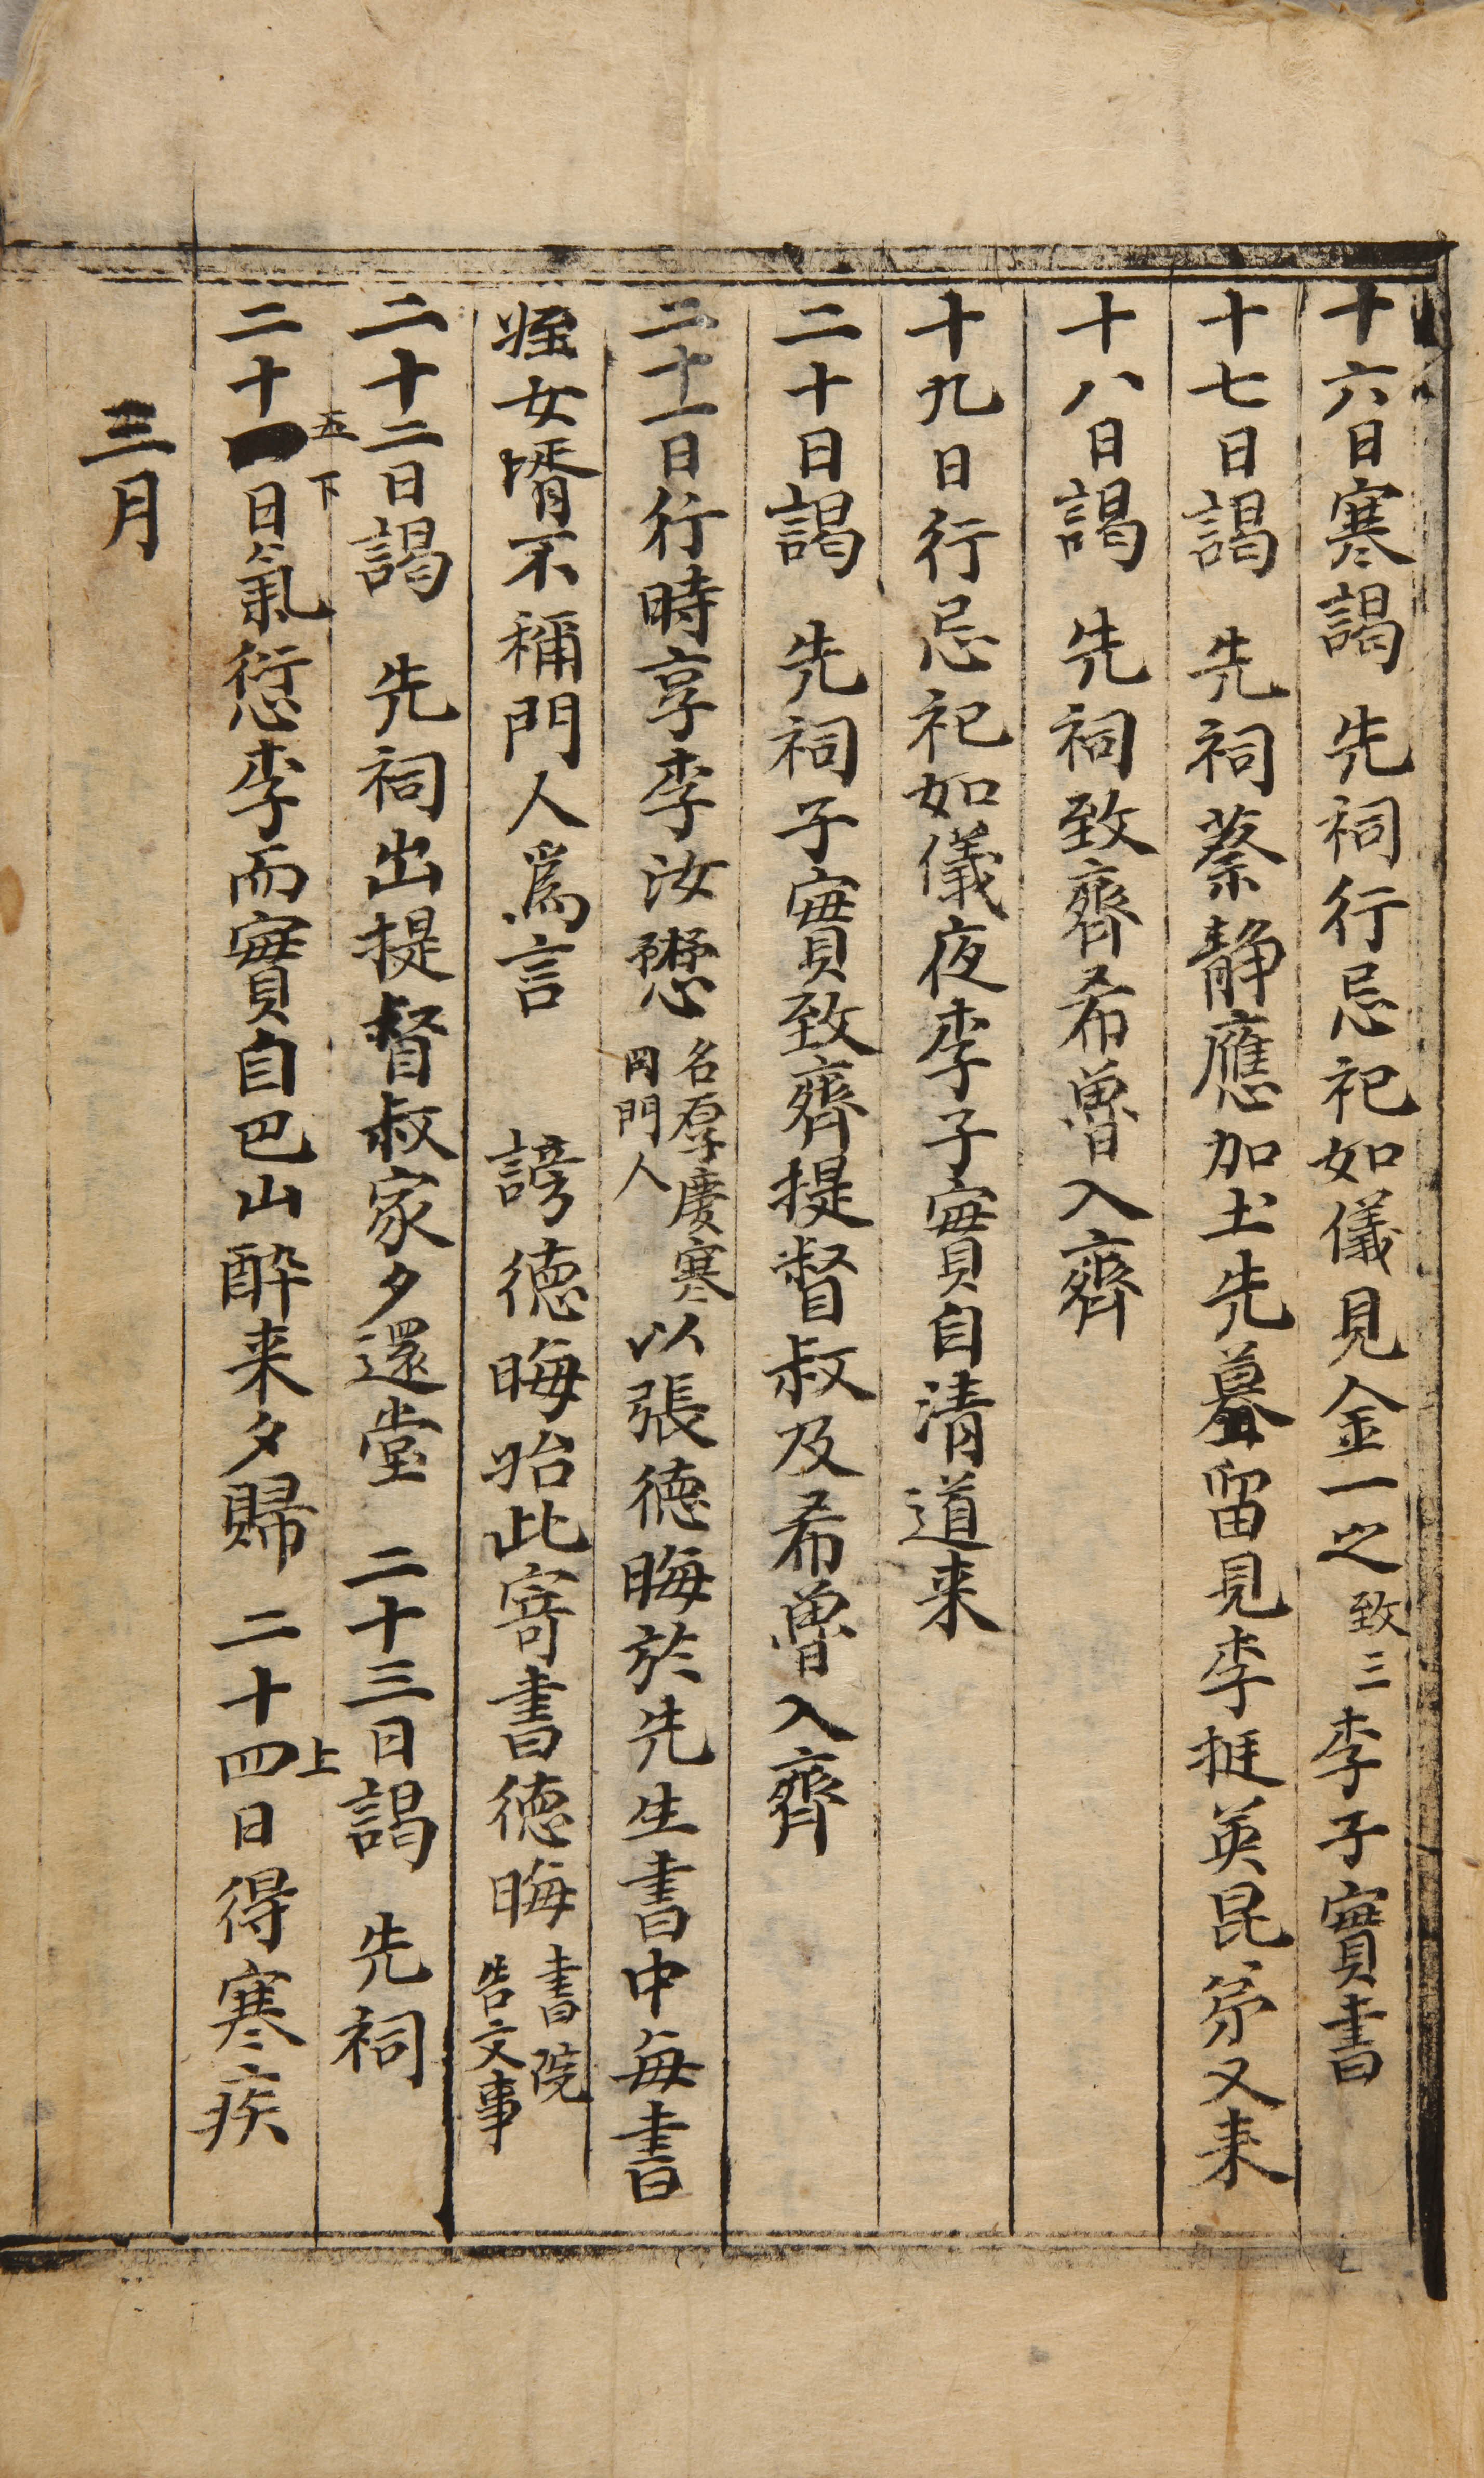 十六日寒謁　先祠行忌祀如儀見金一之致三李子實書
十七日謁　先祠蔡静應加土先墓留見李挺英昆弟又来
十八日謁　先祠致齊希魯入齊
十九日行忌祀如儀夜李子實自清道来
二十日謁　先祠子實致齊提督叔及希魯入齊
二十一日行時享李汝懋名厚慶寒岡門人以張德晦於先生書中每書
姪女壻不稱門人爲言　謗德晦昭此寄書德晦書院告文事
二十二日謁　先祠出提督叔家夕還堂　二十三日謁　先祠
二十日氣愆李而實自巴山醉来夕歸　二十四日得寒疾
五
下
上
三月